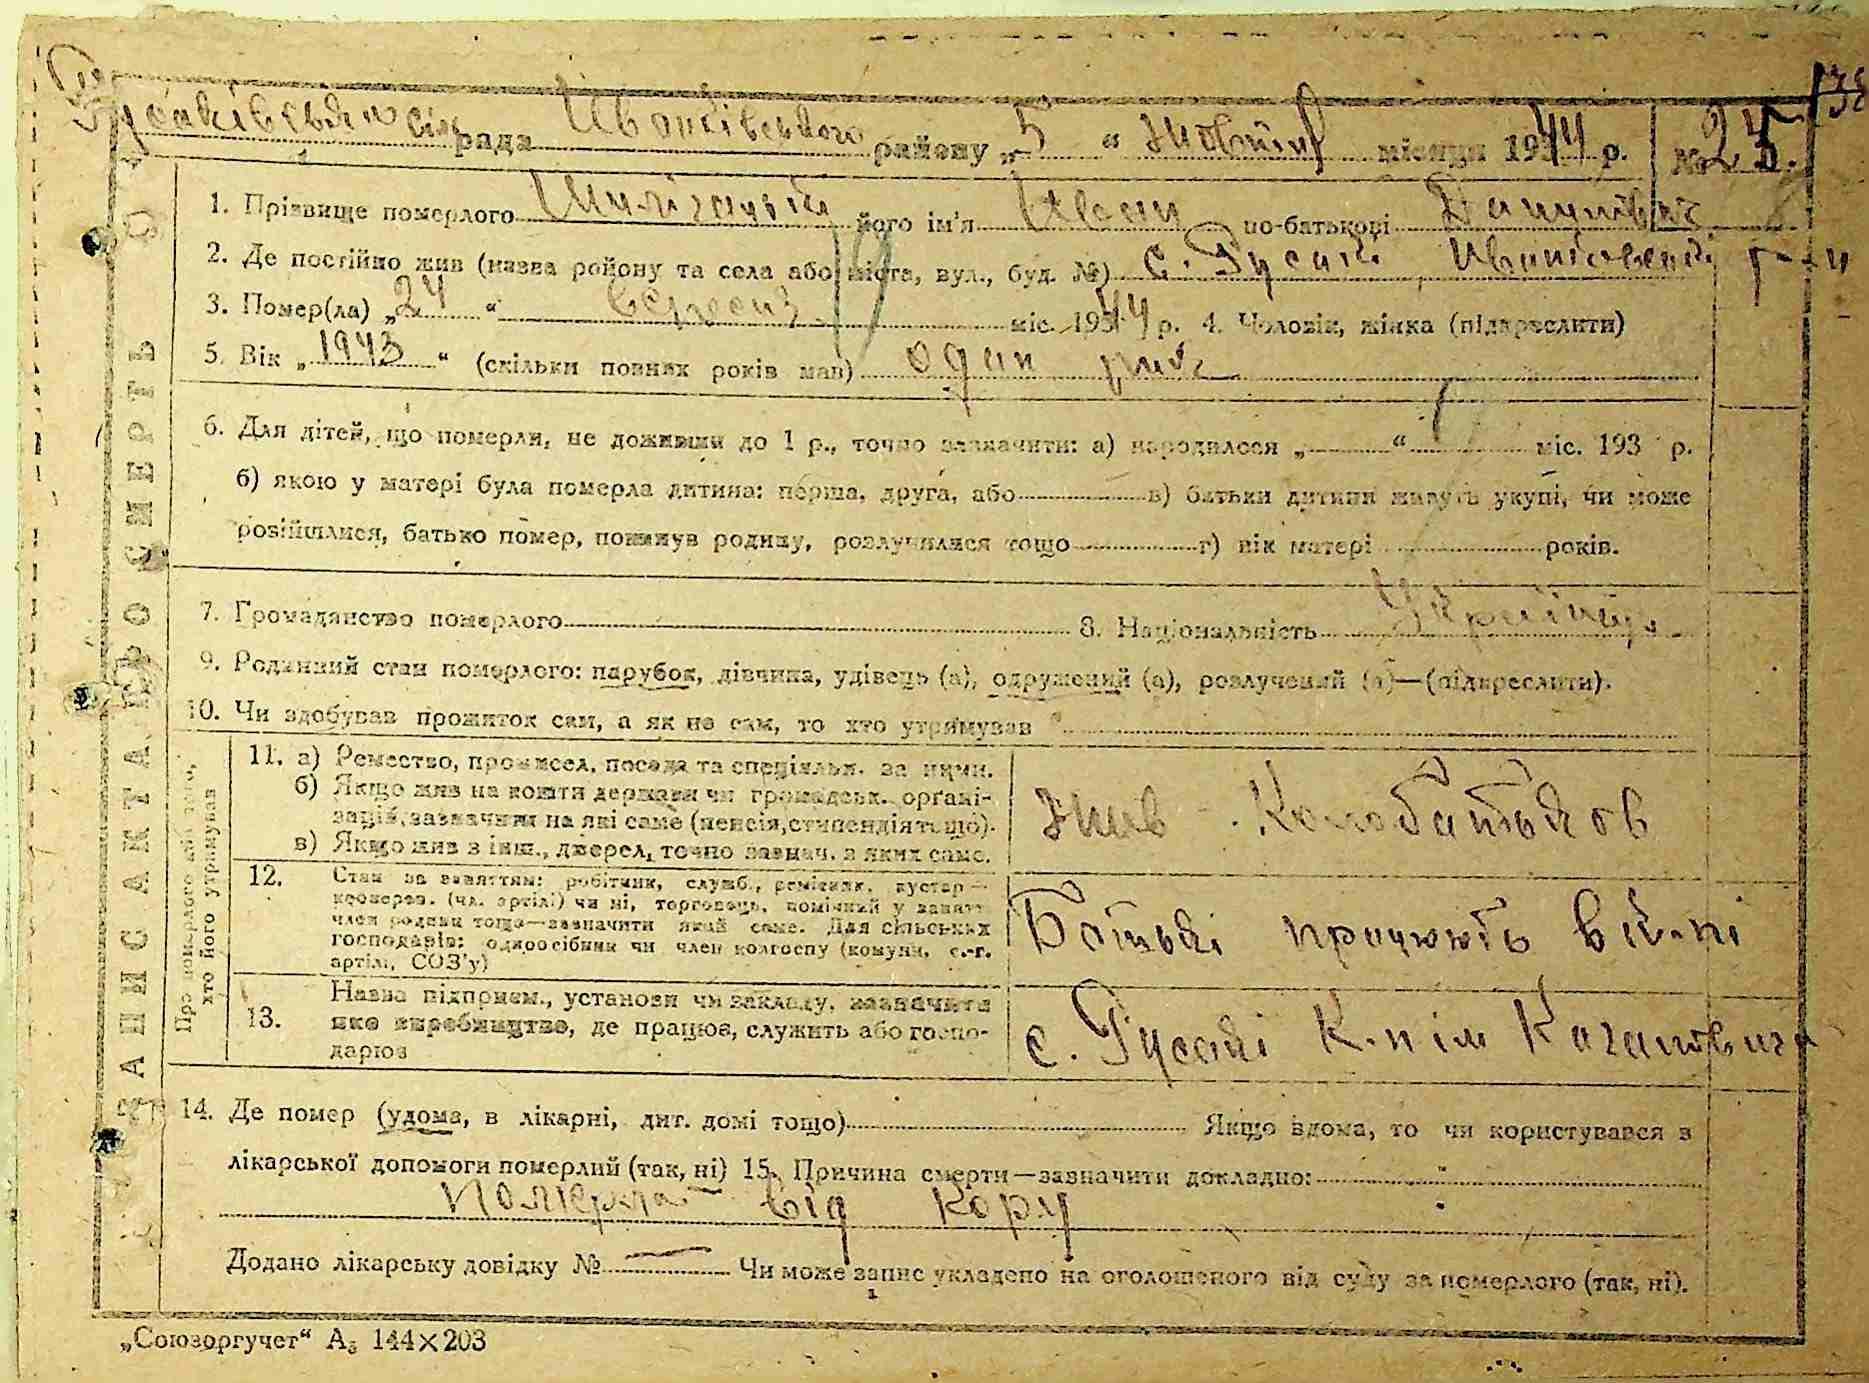 Русаківська сіль рада Іванківського району „5“ жовтня місяця 1944 р. № 25.
1. Прізвище померлого його ім'я Іван по-батькові Данилович
2. Де постійно жив (назва району та села або міста, вул., буд. №) с. Русаки Иванковский р-н
3. Помер(ла) „24“ вересня міс. 1944 р. 4. Чоловік, жінка (підкреслити)
5. Вік „1943“ (скільки повних років мав) один рик
6. Для дітей, що померли, не доживши до 1 р., точно зазначити: а) народилося „ “ міс. 193 р.
б) якою у матері була померла дитина: перша, друга, або в) батьки дитини живуть укупі, чи може
розійшлися, батько помер, покинув родину, розлучилися тощо г) вік матері років.
7. Громадянство померлого 8. Національність Українец
9. Родинний стан померлого: парубок, дівчина, удівець (а), одружений (а), розлучений (а)—(підкреслити).
10. Чи здобував прожиток сам, а як не сам, то хто утримував
ЗАПИС АКТА ПРО СМЕРТЬ
Про померлого або того, хто його утримував
11. а) Ремество, промисел, посада та спеціяльн. за ними.
б) Якщо жив на кошти держави чи громадськ. органі-
зацій, зазначити на які саме (пенсія, стипендія тощо).
в) Якщо жив з інш., джерел, точно зазнач. з яких саме.
жив - Коло батьков
12. Стан за заняттям: робітник, служб., ремісник, кустар—
кооперов. (чл. артілі) чи ні, торговець, помічний у занятт.
член родини тощо—зазначити який саме. Для сільських
господарів: одноосібник чи член колгоспу (комуни, с.-г.
артілі, СОЗ'у)
Батькі працюють в к-пі
13. Назва підприєм., установи чи закладу, зазначити
яке виробництво, де працює, служить або госпо-
дарює
с. Русакі К-п ім Кагановича
14. Де помер (удома, в лікарні, дит. домі тощо) Якщо вдома, то чи користувався з
лікарської допомоги померлий (так, ні) 15. Причина смерти—зазначити докладно:
Померла від кору
Додано лікарську довідку № — Чи може запис укладено на оголошеного від суду за померлого (так, ні).
1
„Союзоргучет“ А₅ 144×203